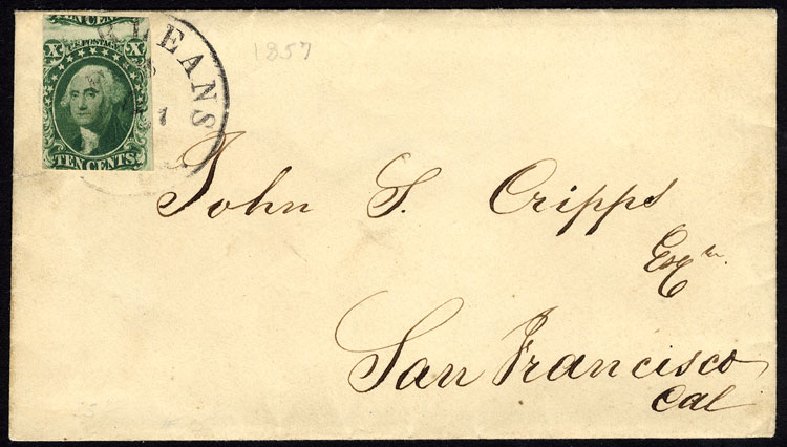 TEN CENTS
X U.S. POSTAGE X
TEN CENTS
RLEANS
1857
John S. Cripps
Esqr.
San Francisco
Cal